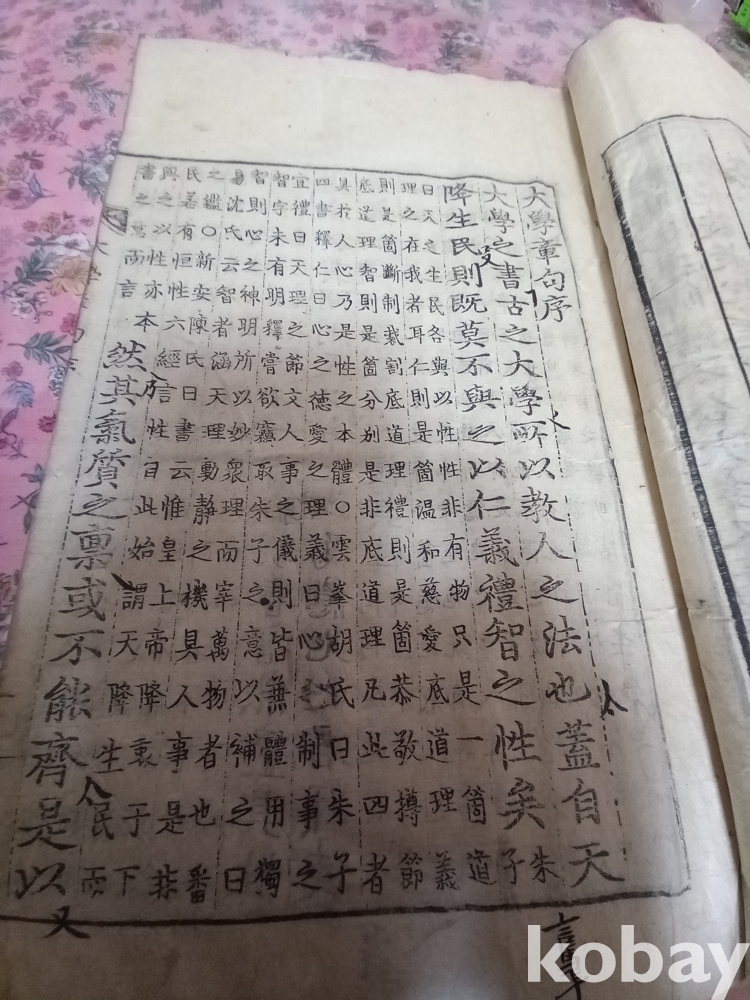 大學章句序
大學之書古之大學所以教人之法也蓋自天
降生民則既莫不與之以仁義禮智之性矣朱子
曰天之生民各與以性性非有物只是一箇道
理之在我者耳仁則是箇溫和慈愛底道理義
則是箇斷制裁割底道理禮則是箇恭敬撙節
底道理智則是箇分别是非底道理凡此四者
具扵人心乃是性之本體○雲峯胡氏曰朱子
四書釋仁曰心之德愛之理義曰心之制事之
宜禮曰天理之節文人事之儀則皆兼體用獨
智字未有明釋嘗欲竊取朱子之意以補之曰
智則心之神明所以妙衆理而宰萬物者也番
易沈氏云智者涵天理動靜之機具人事是非
之鑑○新安陳氏曰書云惟皇上帝降衷于下
民若有恒性六經言性自此始謂天降生民而
與之以性亦本
書之意而言
然其氣質之稟或不能齊是以
大學
kobay